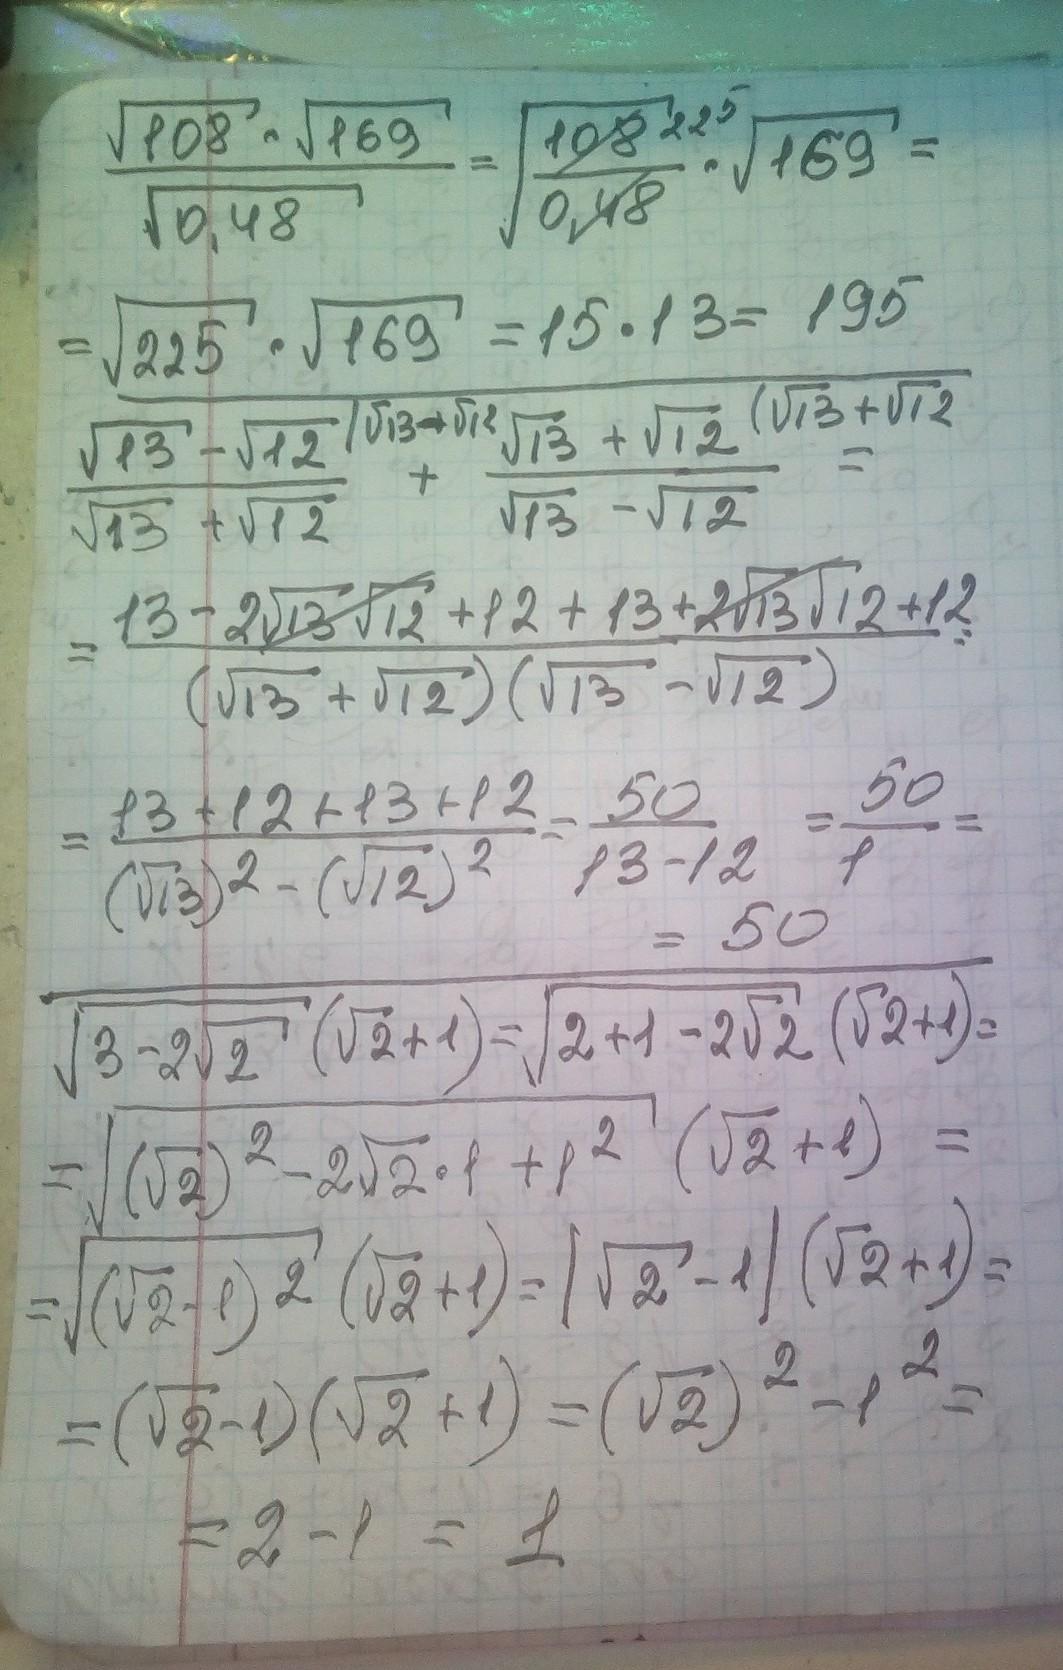 √108 · √169 / √0,48 = √(108 / 0,48) 225 · √169 =
= √225 · √169 = 15 · 13 = 195
(√13 - √12) / (√13 + √12) |√13-√12 + (√13 + √12) / (√13 - √12) (√13+√12 =
= (13 - 2√13 √12 + 12 + 13 + 2√13 √12 + 12) / ((√13 + √12)(√13 - √12)) =
= (13 + 12 + 13 + 12) / ((√13)² - (√12)²) = 50 / (13 - 12) = 50 / 1 =
= 50
√(3 - 2√2) (√2 + 1) = √(2 + 1 - 2√2) (√2 + 1) =
= √((√2)² - 2√2 · 1 + 1²) (√2 + 1) =
= √((√2 - 1)²) (√2 + 1) = |√2 - 1| (√2 + 1) =
= (√2 - 1)(√2 + 1) = (√2)² - 1² =
= 2 - 1 = 1